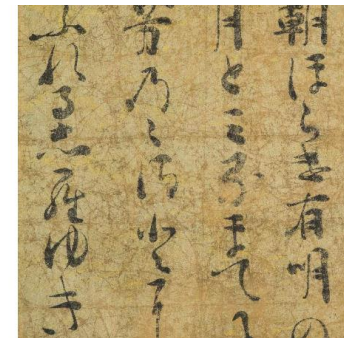 朝ほらけ有明の
月とミるまてに
芳乃ゝ里に
ふれる志らゆき